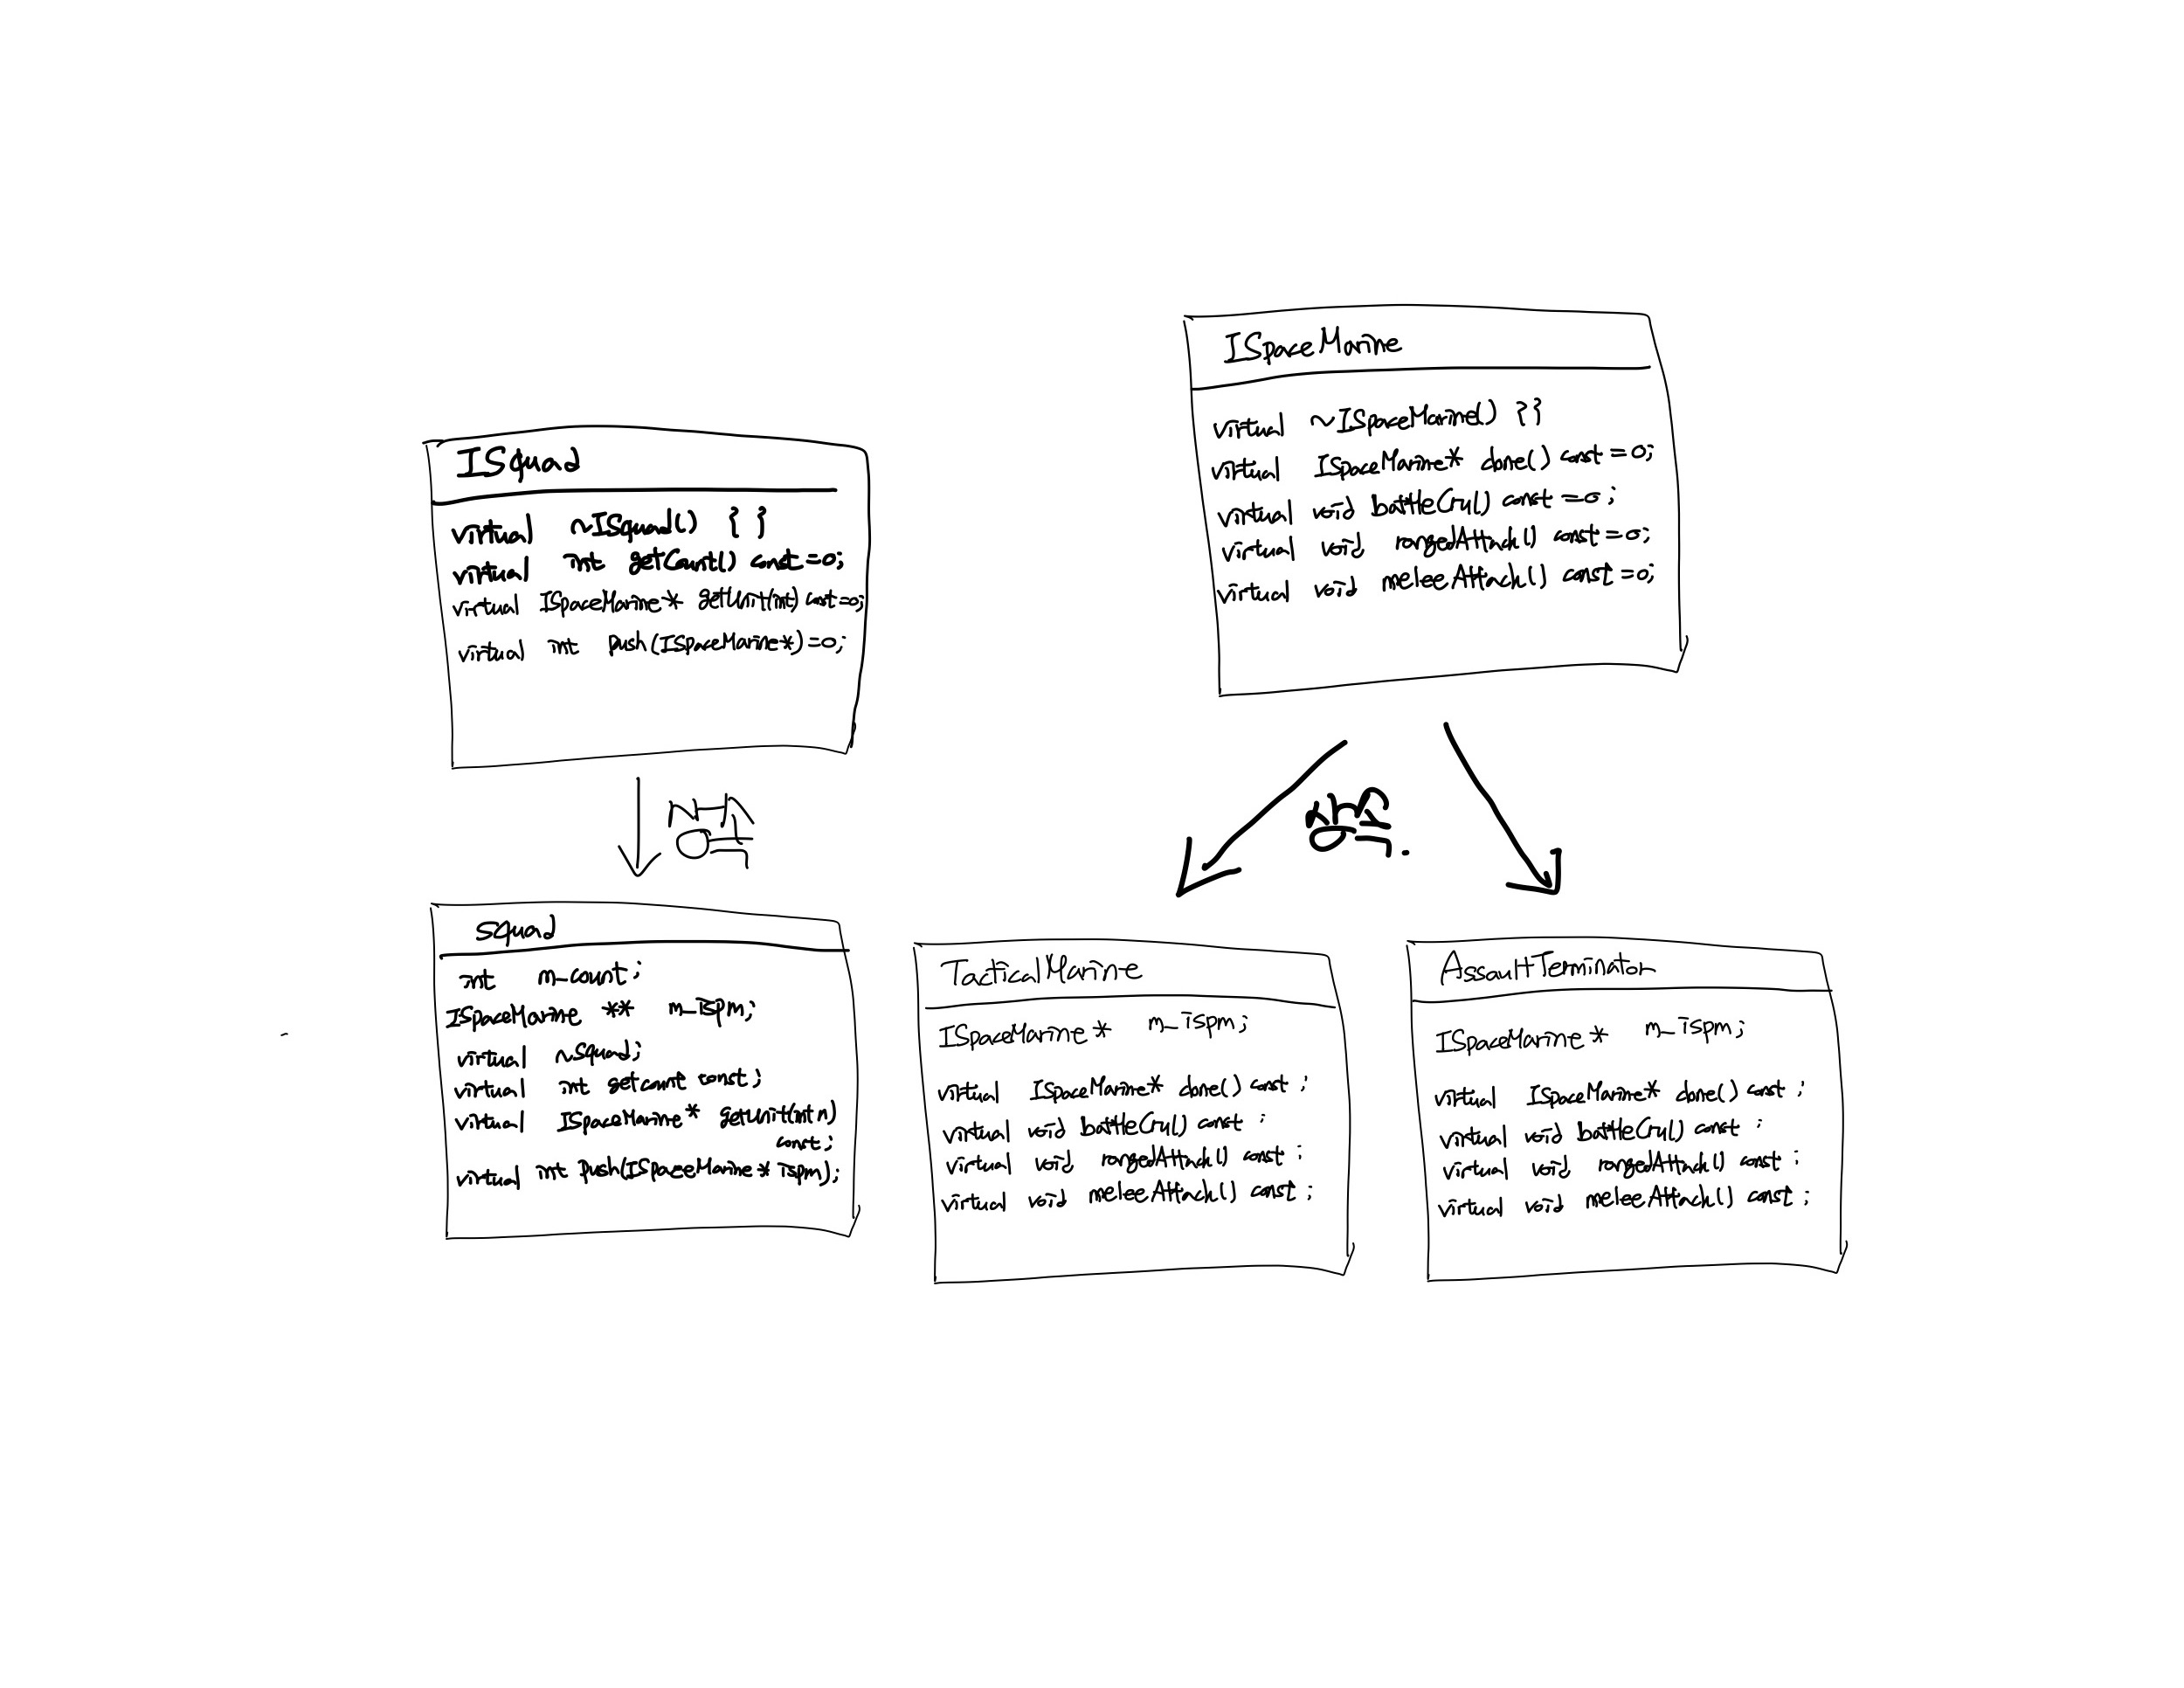 ISquad
virtual ~ISquad() { }
virtual int getCount() const=0;
virtual ISpaceMarine* getUnit(int) const=0;
virtual int push(ISpaceMarine*)=0;
상속
squad
int m_count;
ISpaceMarine ** m_ispm;
virtual ~squad;
virtual int getcount const;
virtual ISpaceMarine* getUnit(int n)
const;
virtual int push(ISpaceMarine* ispm);
ISpaceMarine
virtual ~ISpaceMarine() {}
virtual ISpaceMarine* clone() const=0;
virtual void battleCry() const=0;
virtual void rangedAttack() const=0;
virtual void meleeAttack() const=0;
상속.
TacticalMarine
ISpaceMarine* m_ispm;
virtual ISpaceMarine* clone() const;
virtual void battleCry() const;
virtual void rangedAttack() const;
virtual void meleeAttack() const;
AssaultTerminator
ISpaceMarine* m_ispm;
virtual ISpaceMarine* clone() const;
virtual void battleCry() const;
virtual void rangedAttack() const;
virtual void meleeAttack() const;